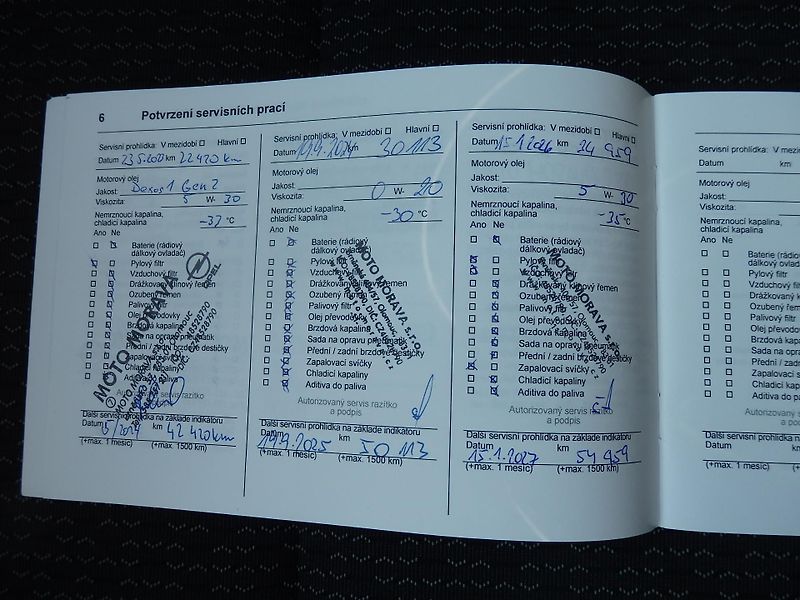 6 Potvrzení servisních prací
Servisní prohlídka: V mezidobí Hlavní
Datum 23.5. km 22 420 km
Motorový olej
Jakost: Dexos 1 Gen 2
Viskozita: 5 W- 30
Nemrznoucí kapalina,
chladicí kapalina -37 °C
Ano Ne
Baterie (rádiový
dálkový ovladač)
Pylový filtr
Vzduchový filtr
Drážkovaný klínový řemen
Ozubený řemen
Palivový filtr
Olej převodovky
Brzdová kapalina
Sada na opravu pneumatik
Přední / zadní brzdové destičky
Zapalovací svíčky
Chladicí kapaliny
Aditiva do paliva
OPEL
MOTO MORAVA
Další servisní prohlídka na základě indikátoru
Datum km
42 420 km
(+max. 1 měsíc) (+max. 1500 km)
Servisní prohlídka: V mezidobí Hlavní
Datum 19.9.2024 km 30 113
Motorový olej
Jakost:
Viskozita: 0 W- 20
Nemrznoucí kapalina,
chladicí kapalina -30 °C
Ano Ne
Baterie (rádiový
dálkový ovladač)
Pylový filtr
Vzduchový filtr
Drážkovaný klínový řemen
Ozubený řemen
Palivový filtr
Olej převodovky
Brzdová kapalina
Sada na opravu pneumatik
Přední / zadní brzdové destičky
Zapalovací svíčky
Chladicí kapaliny
Aditiva do paliva
MOTO MORAVA s.r.o.
Autorizovaný servis razítko
a podpis
Další servisní prohlídka na základě indikátoru
Datum km
19.9.2025 50 113
(+max. 1 měsíc) (+max. 1500 km)
Servisní prohlídka: V mezidobí Hlavní
Datum 15.1.2026 km 34 959
Motorový olej
Jakost:
Viskozita: 5 W- 30
Nemrznoucí kapalina,
chladicí kapalina -35 °C
Ano Ne
Baterie (rádiový
dálkový ovladač)
Pylový filtr
Vzduchový filtr
Drážkovaný klínový řemen
Ozubený řemen
Palivový filtr
Olej převodovky
Brzdová kapalina
Sada na opravu pneumatik
Přední / zadní brzdové destičky
Zapalovací svíčky
Chladicí kapaliny
Aditiva do paliva
MOTO MORAVA s.r.o.
Autorizovaný servis razítko
a podpis
Další servisní prohlídka na základě indikátoru
Datum km
15.1.2027 54 959
(+max. 1 měsíc) (+max. 1500 km)
Servisní prohlídka:
Datum km
Motorový olej
Jakost:
Viskozita:
Nemrznoucí kapalina,
chladicí kapalina
Ano Ne
Baterie (rádiový
dálkový
Pylový filtr
Vzduchový filtr
Drážkovaný
Ozubený
Palivový filtr
Olej převodovky
Brzdová kapalina
Sada na opravu
Přední / zadní
Zapalovací
Chladicí kapaliny
Aditiva do paliva
Autorizovaný
Další servisní prohlídka
Datum
(+max. 1 měsíc)